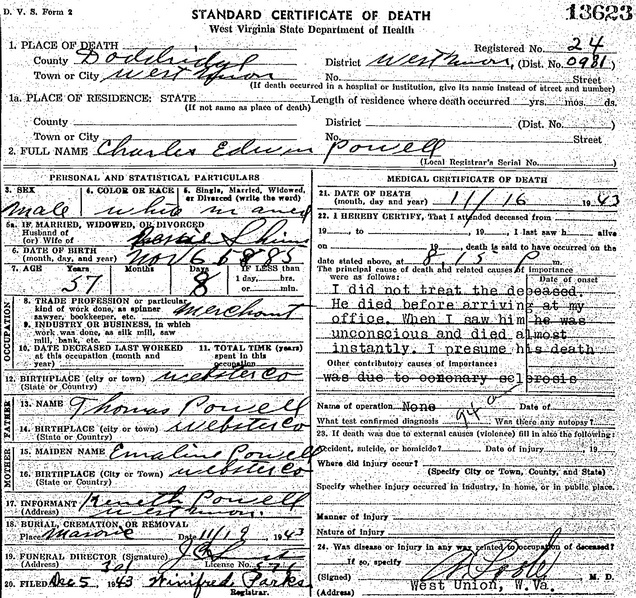 D. V. S. Form 2
STANDARD CERTIFICATE OF DEATH
13623
West Virginia State Department of Health
1. PLACE OF DEATH
Registered No. 24
County Doddridge
District West Union, (Dist. No. 0981
Town or City West Union
No. Street
(If death occurred in a hospital or institution, give its name instead of street and number)
1a. PLACE OF RESIDENCE: STATE Length of residence where death occurred yrs. mos. ds.
(If not name as place of death)
County District (Dist. No. )
Town or City No. Street
2. FULL NAME Charles Edwin Powell
(Local Registrar's Serial No.
PERSONAL AND STATISTICAL PARTICULARS
3. SEX
4. COLOR OR RACE
5. Single, Married, Widowed, or Divorced (write the word)
male white married
5a. IF MARRIED, WIDOWED, OR DIVORCED
Husband of
(or) Wife of
6. DATE OF BIRTH
(month, day, and year) Nov 6 1885
7. AGE Years Months Days IF LESS than
57 8 1 day, hrs.
or min.
OCCUPATION
8. TRADE PROFESSION or particular
kind of work done, as spinner
sawyer, bookkeeper, etc. Merchant
9. INDUSTRY OR BUSINESS, in which
work was done, as silk mill, saw
mill, bank, etc.
10. DATE DECEASED LAST WORKED
at this occupation (month and
year)
11. TOTAL TIME (years)
spent in this
occupation
12. BIRTHPLACE (city or town) Webster Co
(State or Country)
FATHER
13. NAME Thomas Powell
14. BIRTHPLACE (city or town) Webster Co
(State or Country)
MOTHER
15. MAIDEN NAME Emaline Powell
16. BIRTHPLACE (City or Town) Webster Co
(State or Country)
17. INFORMANT Kenneth Powell
(Address) West Union.
18. BURIAL, CREMATION, OR REMOVAL
Place Masonic Date 11/19 1943
19. FUNERAL DIRECTOR (Signature)
(Address) License No.
20. FILED Dec 5, 1943 Winifred Parks
Registrar.
MEDICAL CERTIFICATE OF DEATH
21. DATE OF DEATH
(month, day and year) 11/16 1943
22. I HEREBY CERTIFY, That I attended deceased from
19 to , 19 I last saw h alive
on , 19 death is said to have occurred on the
date stated above, at 8 15 P m.
The principal cause of death and related causes of importance
were as follows:
Date of onset
I did not treat the deceased.
He died before arriving at my
office. When I saw him he was
unconscious and died almost
instantly. I presume his death
Other contributory causes of importance:
was due to coronary sclerosis
94 a
Name of operation None Date of
What test confirmed diagnosis Was there any autopsy?
23. If death was due to external causes (violence) fill in also the following:
Accident, suicide, or homicide? Date of injury , 19
Where did injury occur?
(Specify City or Town, County, and State)
Specify whether injury occurred in Industry, in home, or in public place.
Manner of Injury
Nature of Injury
24. Was disease or Injury in any way related to occupation of deceased?
If so, specify
(Signed) M. D.
(Address) West Union, W.Va.